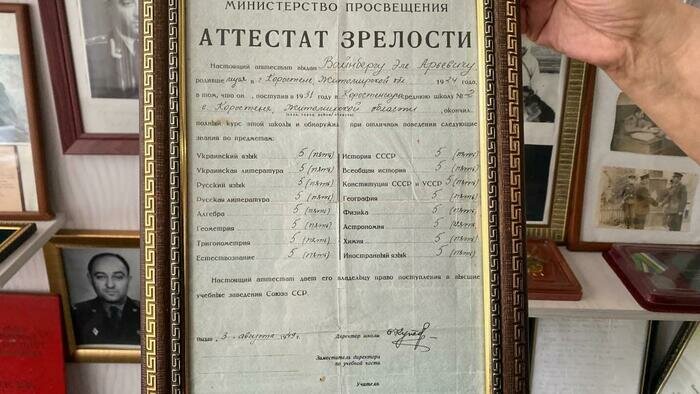 МИНИСТЕРСТВО ПРОСВЕЩЕНИЯ
АТТЕСТАТ ЗРЕЛОСТИ
Настоящий аттестат выдан Вайнбергу Эле Арьевичу
родивше муся в г. Коростень, Житомирской обл 1924 году,
в том, что он, поступив в 1931 году в Коростенскую среднюю школу № 2
г. Коростеня, Житомирской области, окончил
полный курс этой школы и обнаружил при отличном поведении следующие
знания по предметам:
Украинский язык 5 (пять) История СССР 5 (пять)
Украинская литература 5 (пять) Всеобщая история 5 (пять)
Русский язык 5 (пять) Конституция СССР и УССР 5 (пять)
Русская литература 5 (пять) География 5 (пять)
Алгебра 5 (пять) Физика 5 (пять)
Геометрия 5 (пять) Астрономия 5 (пять)
Тригонометрия 5 (пять) Химия 5 (пять)
Естествознание 5 (пять) Иностранный язык 5 (пять)
Настоящий аттестат дает его владельцу право поступления в высшие
учебные заведения Союза ССР.
Выдан 3 августа 1949 г. Директор школы
Заместитель директора
по учебной части
Учитель